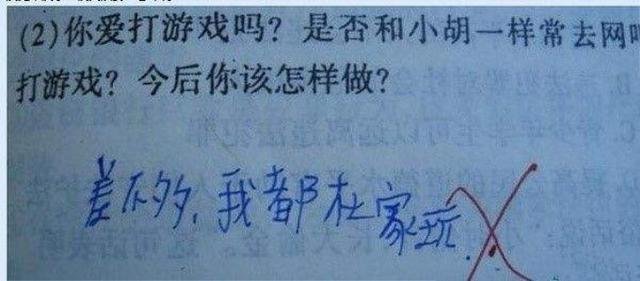 (2)你爱打游戏吗？是否和小胡一样常去网吧
打游戏？今后你该怎样做？
差不多，我都在家玩.